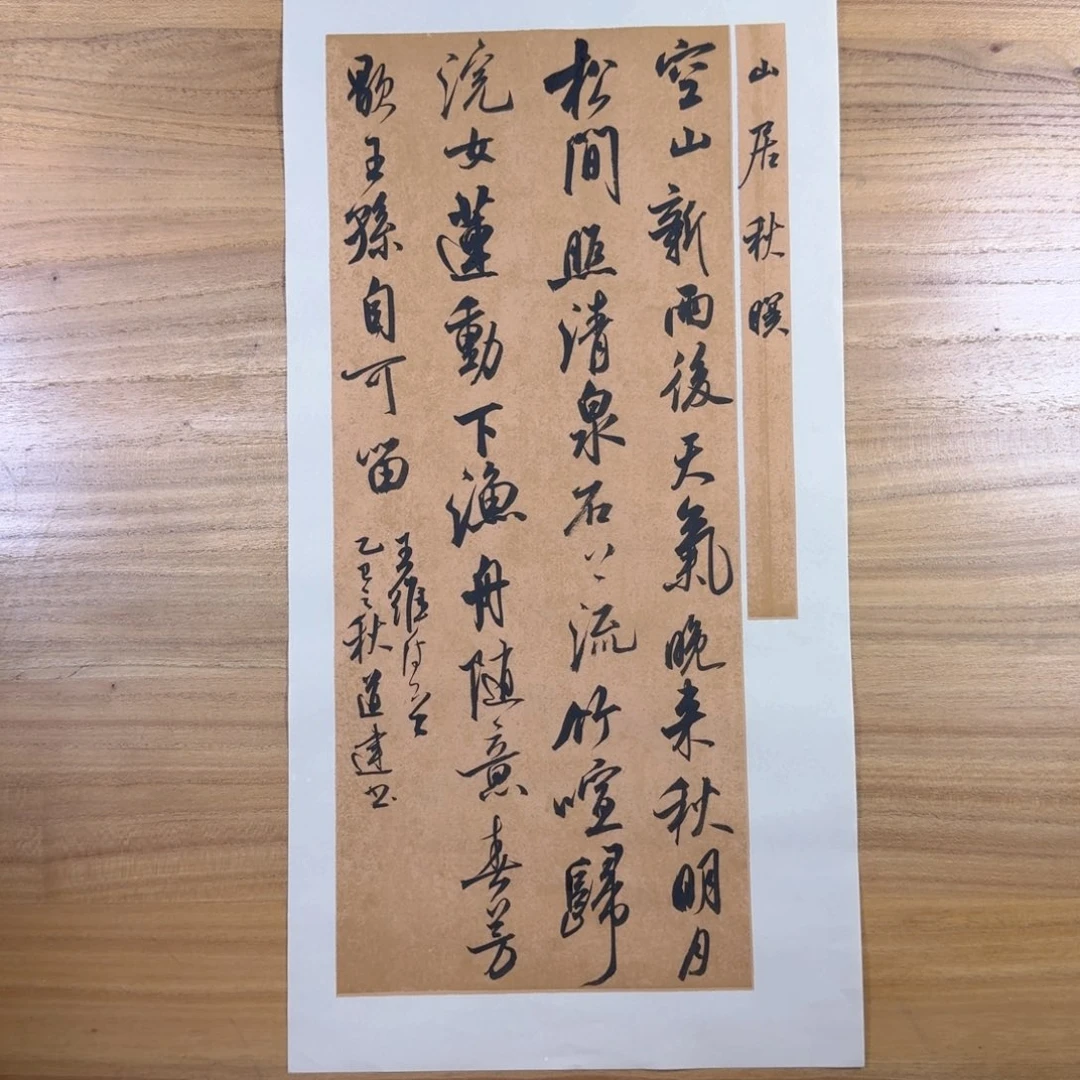 山居秋暝
空山新雨後天氣晚来秋明月
松間照清泉石上流竹喧歸
浣女蓮動下漁舟随意春芳
歇王孫自可留
王維诗一首
乙巳之秋道達书